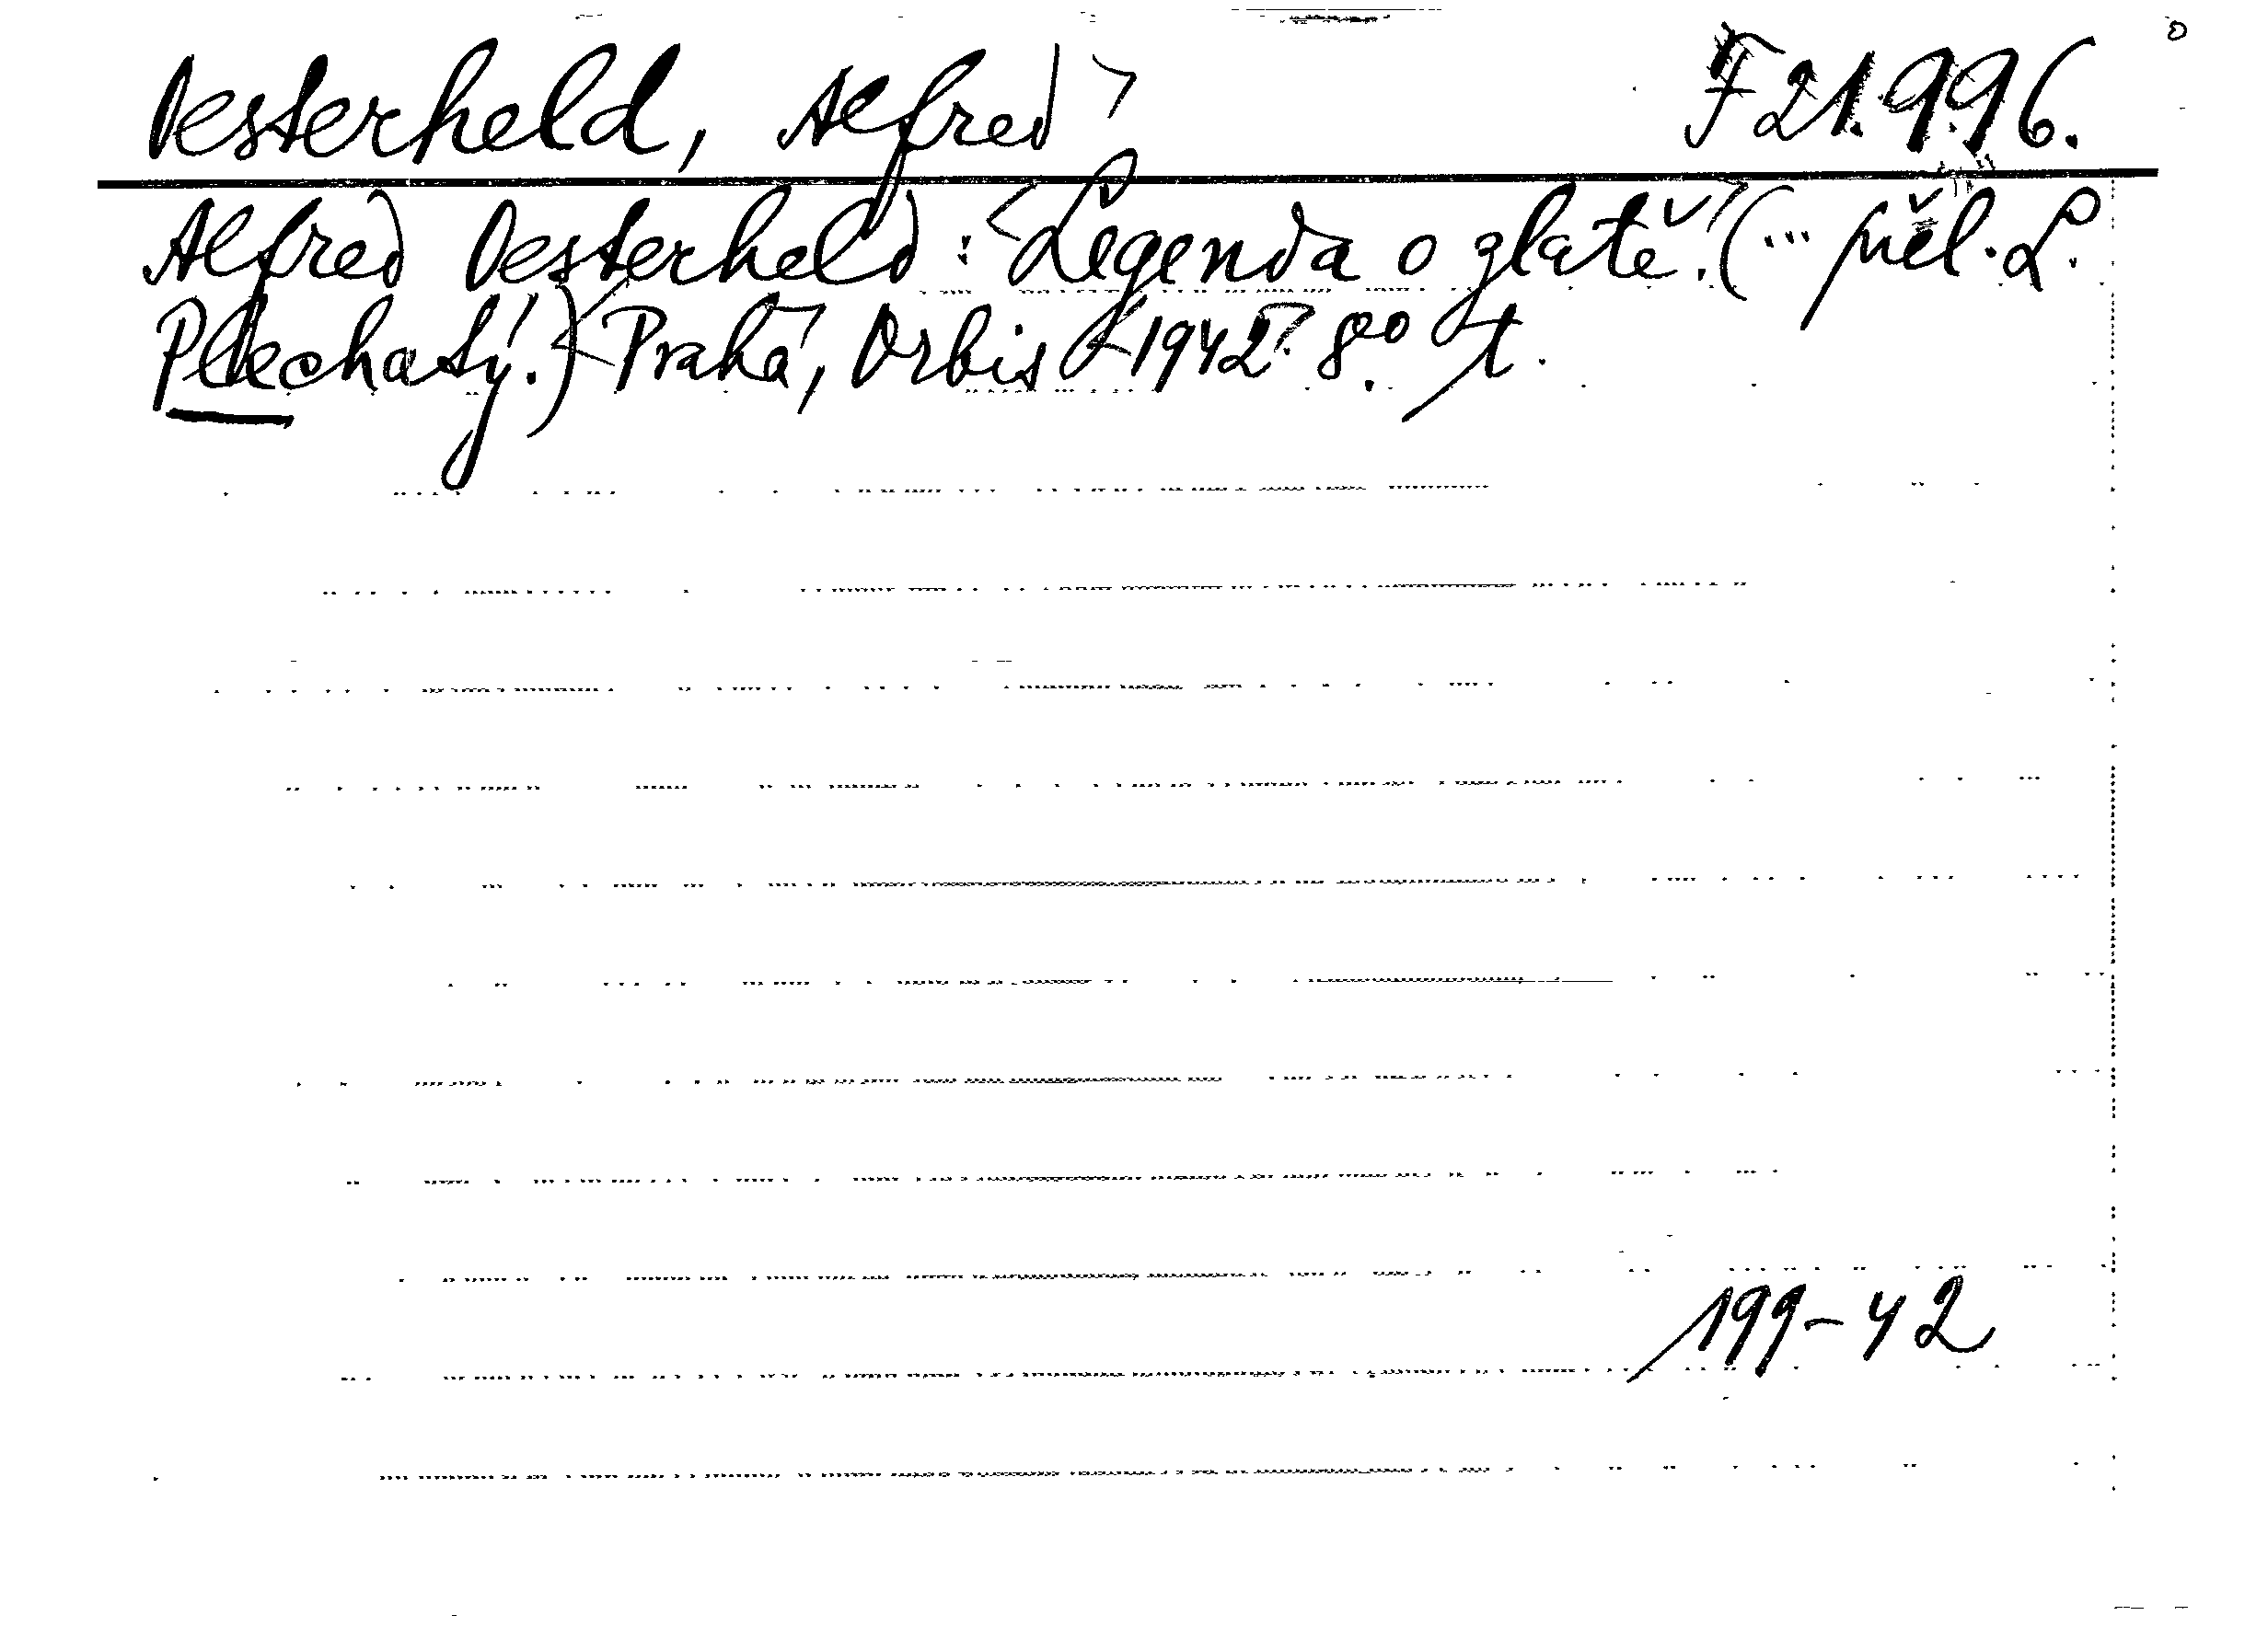 Oesterheld, Alfred> F 21.996.
Alfred Oesterheld: <Legenda o zlatě.> (... přel. L.
Plechatý.) <Praha>, Orbis <1942>. 8° t.
199-42